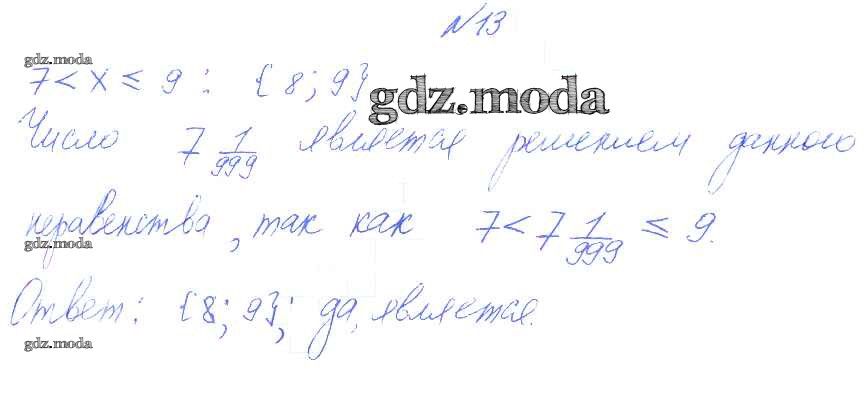 №13
gdz.moda
7 < x ≤ 9 : {8; 9}
gdz.moda
Число 7 1/999 является решением данного
неравенства, так как 7 < 7 1/999 ≤ 9.
gdz.moda
Ответ: {8; 9}; да, является.
gdz.moda